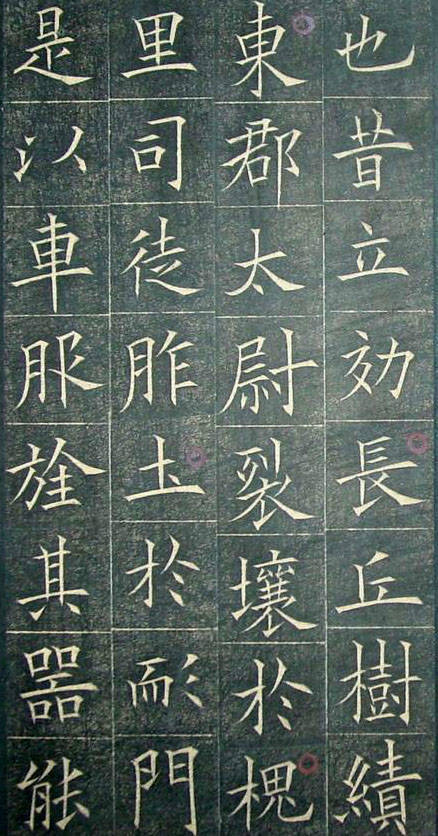 也昔立効長丘樹績
東郡太尉裂壤於槐
里司徒胙土於耏門
是以車服旌其器能